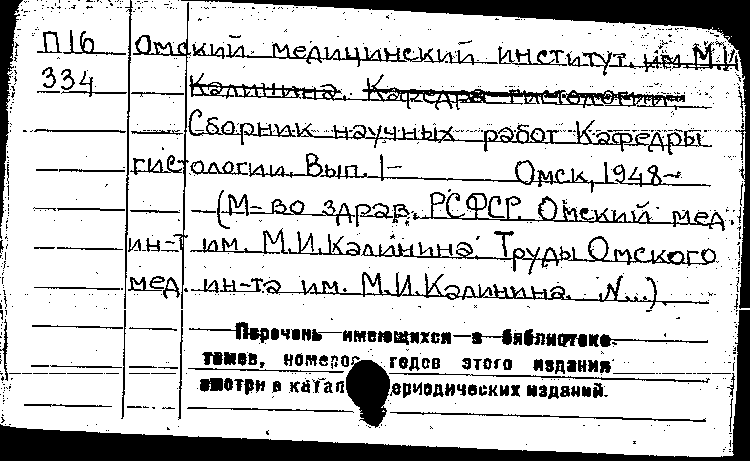 П16 Омский медицинский институт. им. М.И
334 Калинина. Кафедра гистологии.
Сборник научных работ Кафедры
гистологии. Вып. 1- Омск, 1948-
(М-во здрав. РСФСР. Омский мед.
ин-т им. М.И.Калинина. Труды Омского
мед. ин-та им. М.И.Калинина. N...).
Перечень имеющихся в библиотеке
томов, номеров, годов этого издания
смотри в периодических изданий.